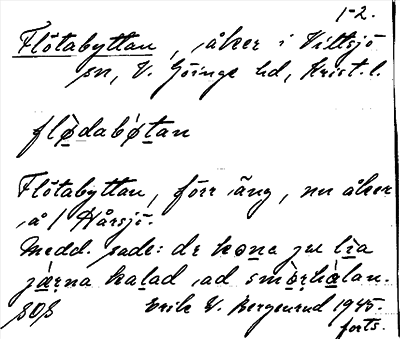 1-2.
Flötabyttan, åker i Vittsjö
sn, V. Göinge hd, Krist. l.
flø̀dabøtan
Flötabyttan, förr äng, nu åker
å / Hårsjö.
Medd. sade: de kona ju lia
järna kalad ad smörhålan.
SOS Erik W. Bergenrud 1945.
forts.